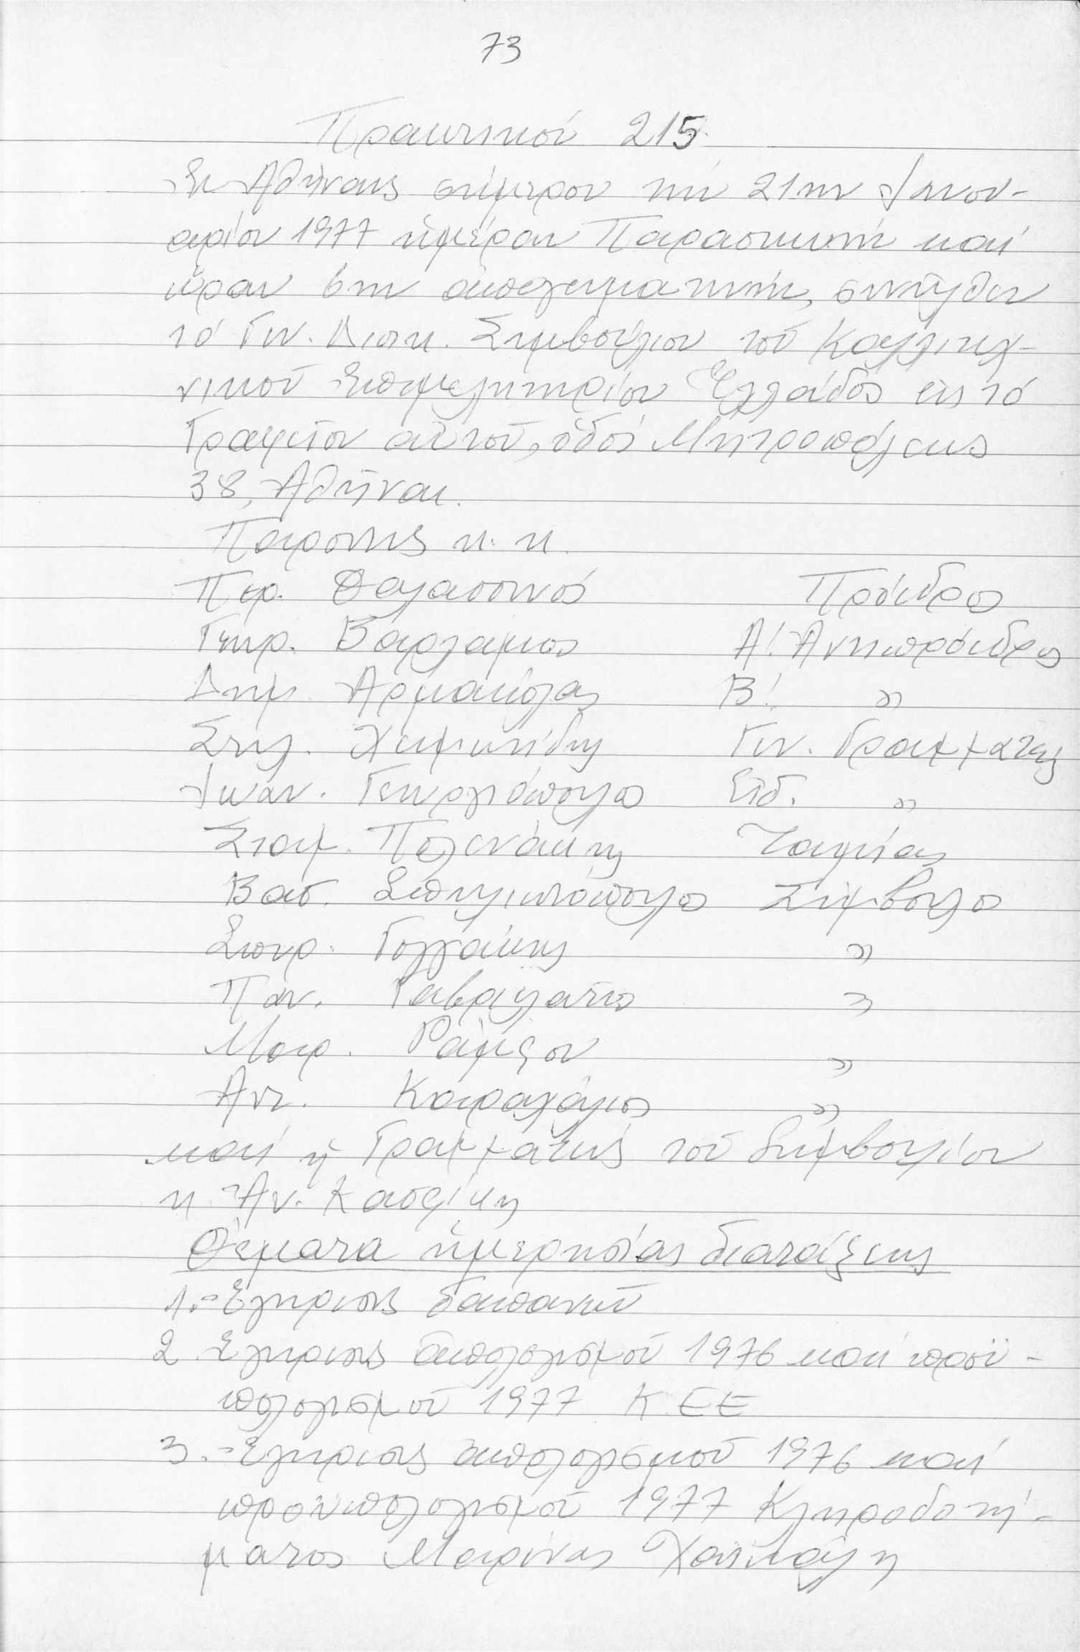 73
Πρακτικόν 215.
Ἐν Ἀθήναις σήμερον τήν 21ην Ἰανου-
αρίου 1977 ἡμέραν Παρασκευήν καί
ὥραν 6ην ἀπογευματινήν, συνῆλθεν
τό Γεν. Διοικ. Συμβούλιον τοῦ Καλλιτεχ-
νικοῦ Ἐπιμελητηρίου Ἑλλάδος εἰς τό
Γραφεῖον αὐτοῦ, ὁδός Μητροπόλεως
38, Ἀθῆναι.
Παρόντες κ. κ.
Περ. Θαλασσινός Πρόεδρος
Γεώρ. Βαρλάμος Α! Ἀντιπρόεδρος
Δημ. Αρμακόλας Β! »
Στυλ. Γεν. Γραμματεύς
Ἰωάν. Γεωργιόπουλος Εἰδ. »
Σταμ. Πολενάκης Ταμίας
Βασ. Σύμβουλος
Σωτρ. Γογγάκης »
Παν. Γαβριλάτος »
Μαρ. Ράμφου »
Αντ. Καραχάλιος »
καί ἡ Γραμματεύς τοῦ Συμβουλίου
κ. Ἀν. Κασφίκη
Θέματα ἡμερησίας διατάξεως
1.- Ἔγκρισις δαπανῶν
2 Ἔγκρισις ἀπολογισμοῦ 1976 καί προϋ-
πολογισμοῦ 1977 Κ Ε Ε
3.- Ἔγκρισις ἀπολογισμοῦ 1976 καί
προϋπολογισμοῦ 1977 Κληροδοτή-
ματος Μαρίνας